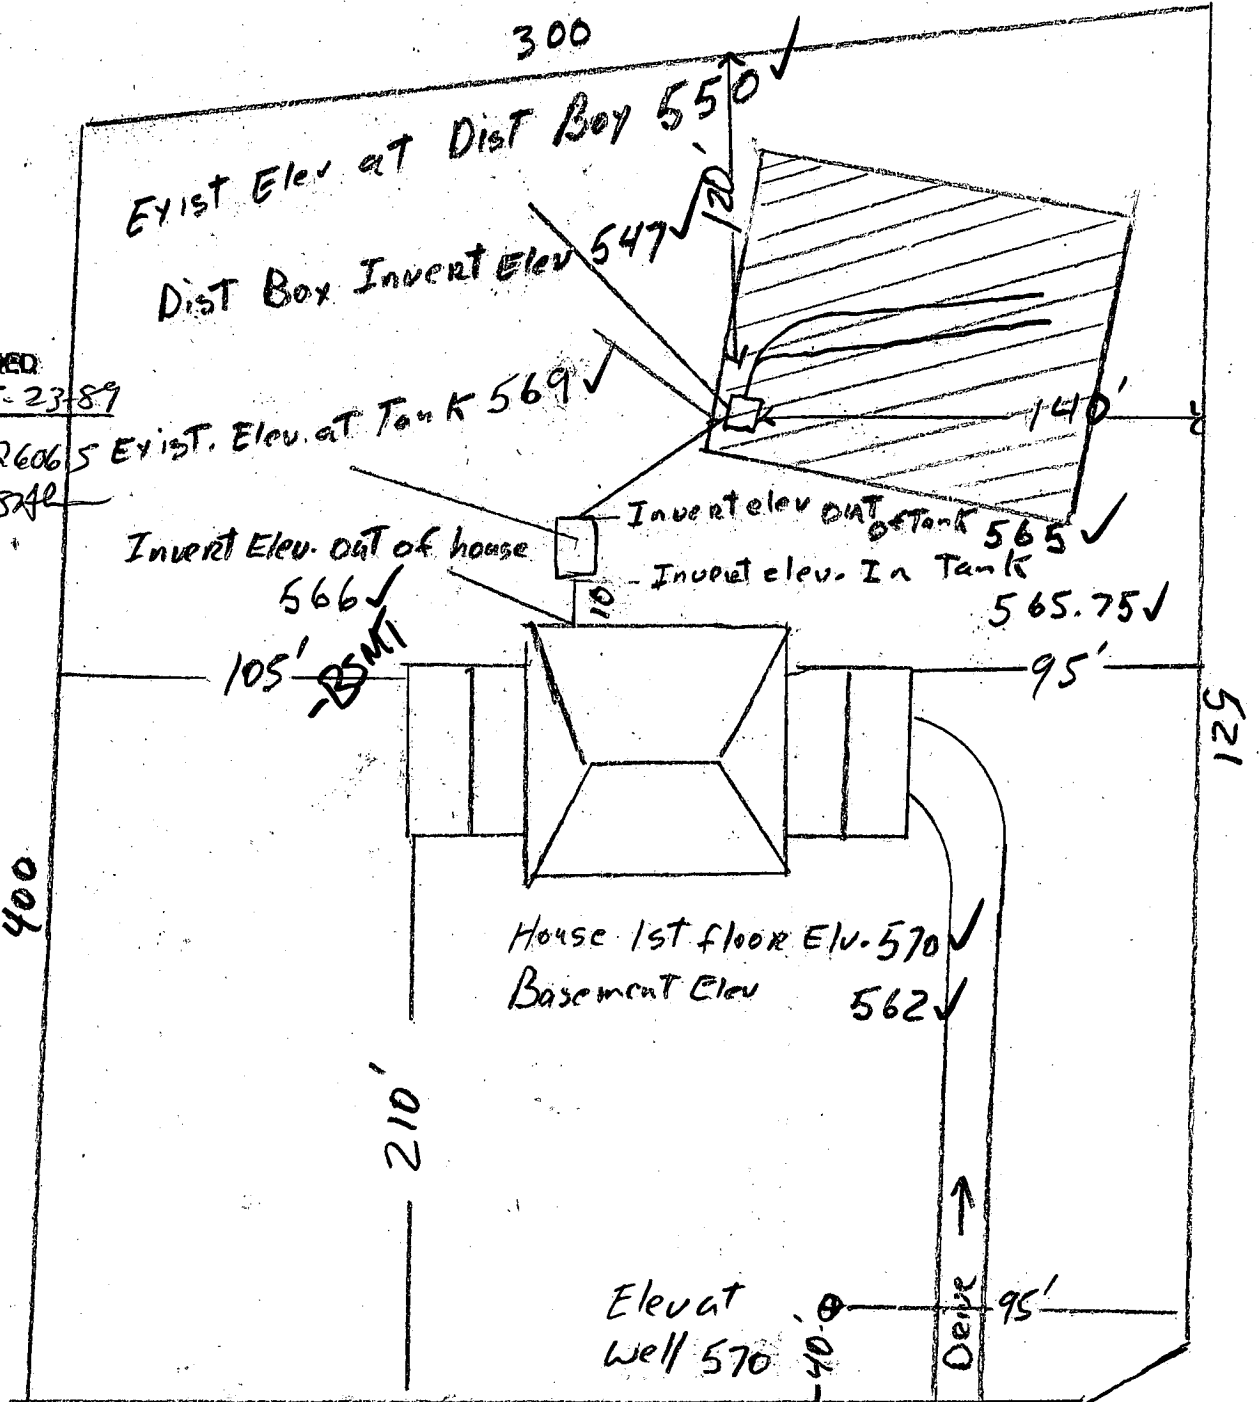 300
Exist Elev at Dist Boy 550 ✓
120'
Dist Box Invert Elev 547 ✓
5-23-89
Exist. Elev. at Tank 569 ✓
140'
Invert elev out of Tank 565 ✓
Invert Elev. out of house
566 ✓
Invert elev. In Tank
565.75 ✓
10
105'
-BSMT
95'
521
400
House 1st floor Elv. 570 ✓
Basement Elev 562 ✓
210'
Elev at
Well 570
40'
95'
Drive →